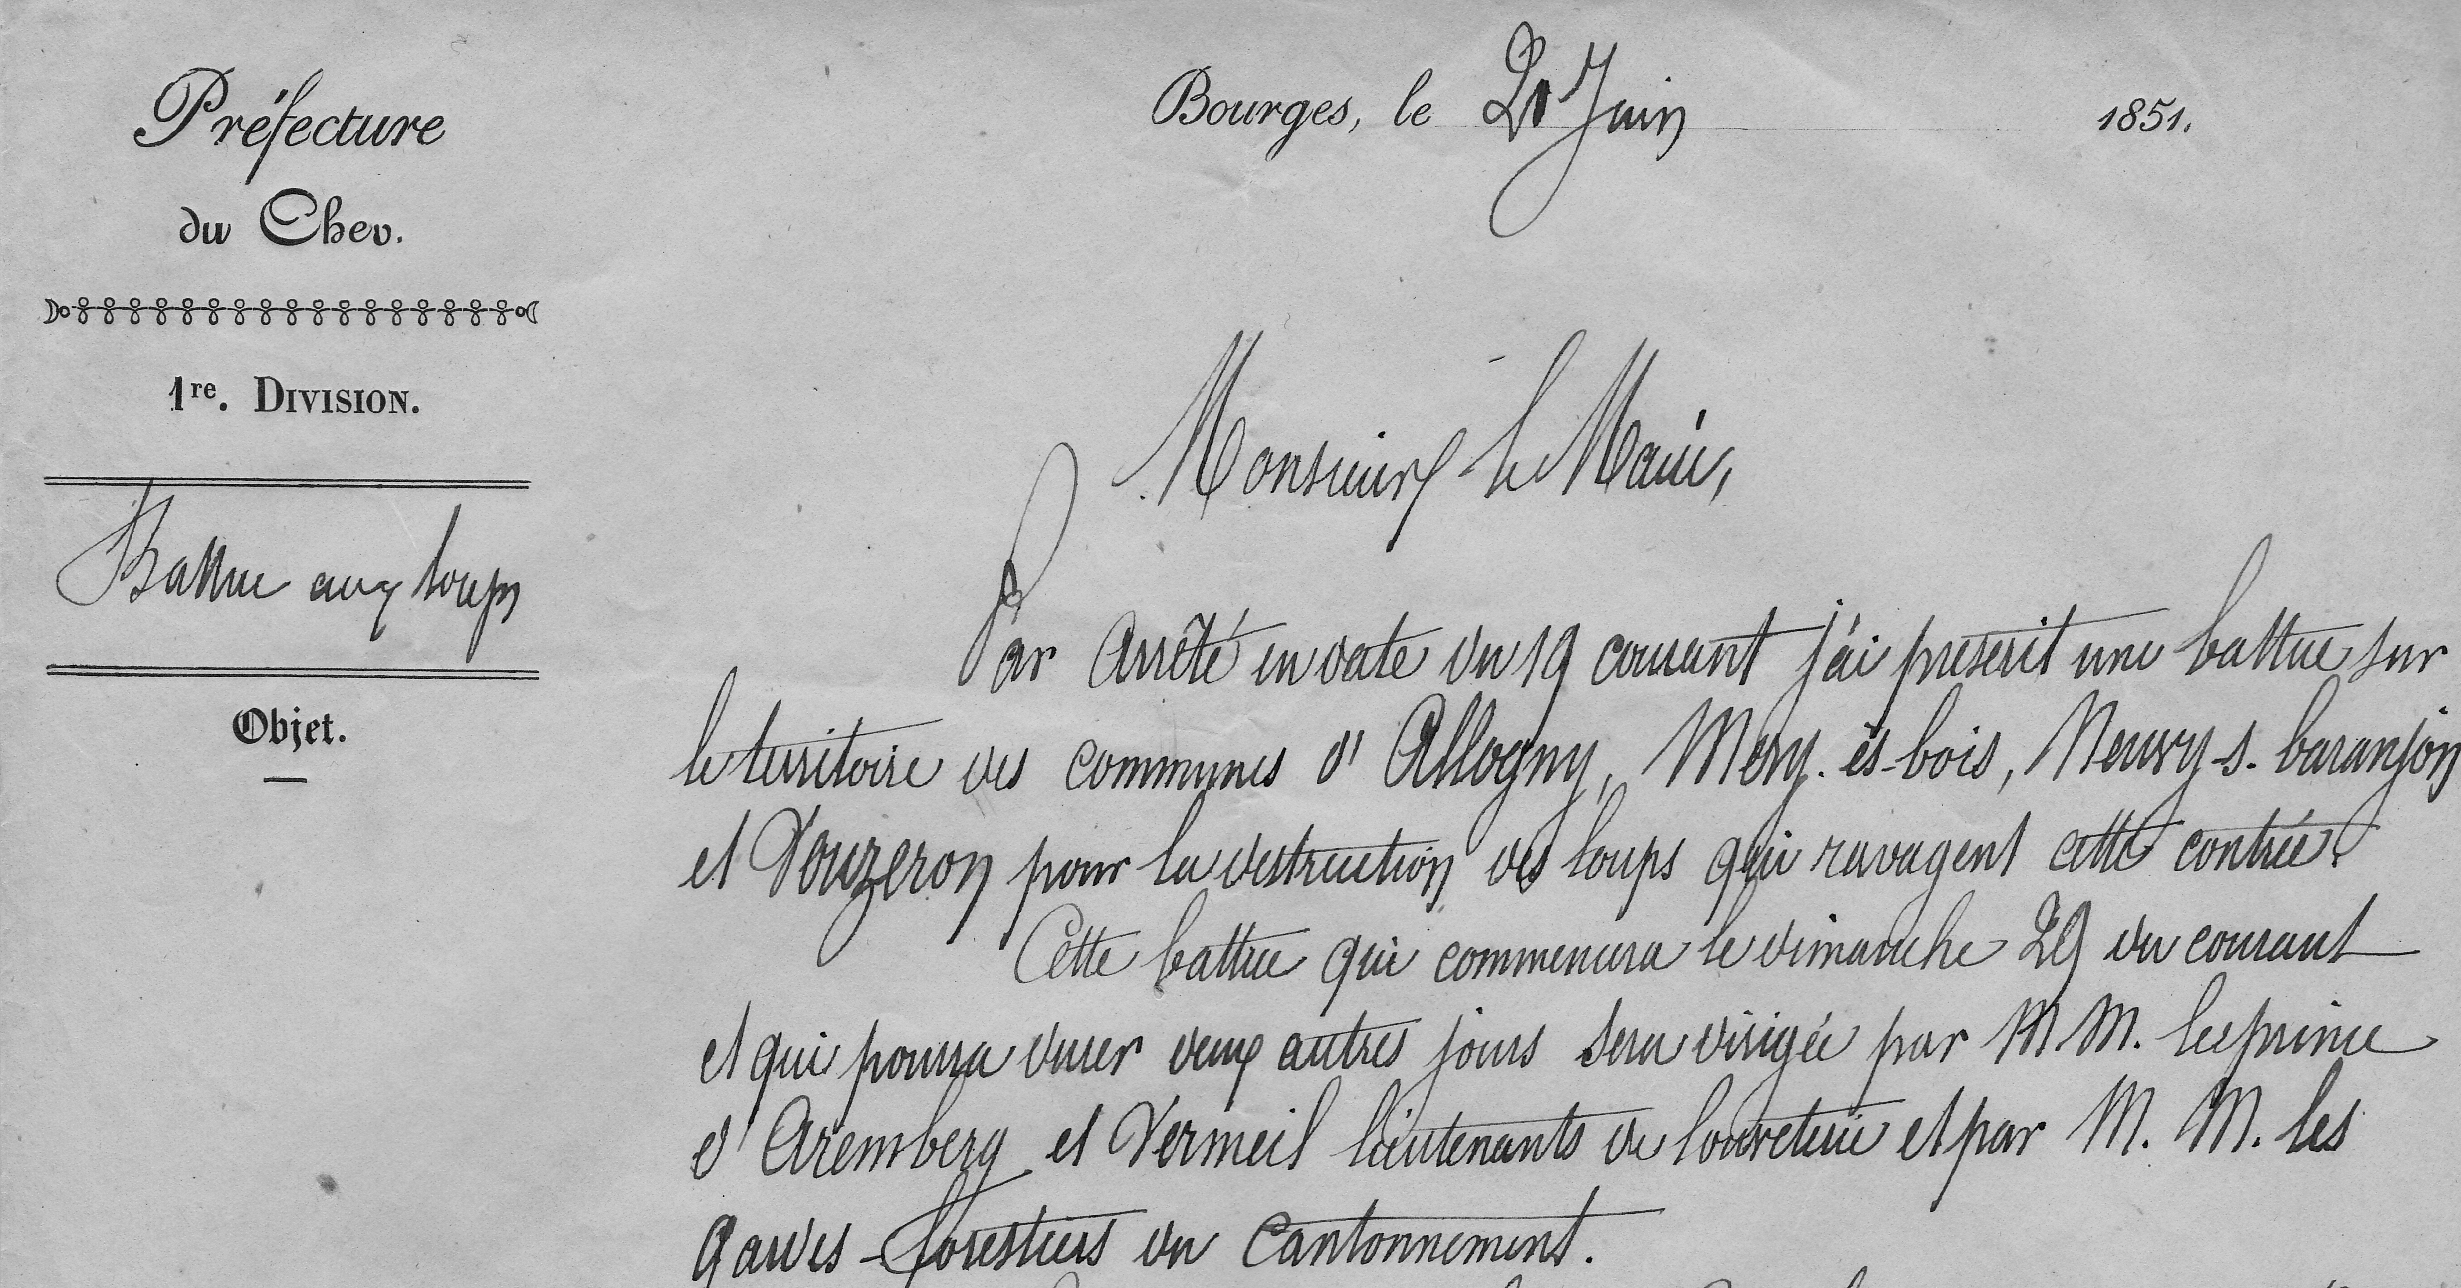 Préfecture
du Cher.
1re. DIVISION.
Battue aux loups
Objet.
Bourges, le 21 Juin 1851.
Monsieur le Maire,
Par Arrêté en date du 19 courant j'ai prescrit une battue sur
le territoire des communes d'Allogny, Mery-ès-bois, Neuvy-s-baranjon
et Vouzeron pour la destruction des loups qui ravagent cette contrée.
Cette battue qui commencera le dimanche 29 du courant
et qui pourra durer deux autres jours sera dirigée par M M. le prince
d'Aremberg et Vermeil lieutenants de louveterie et par M. M. les
gardes-forestiers du Cantonnement.